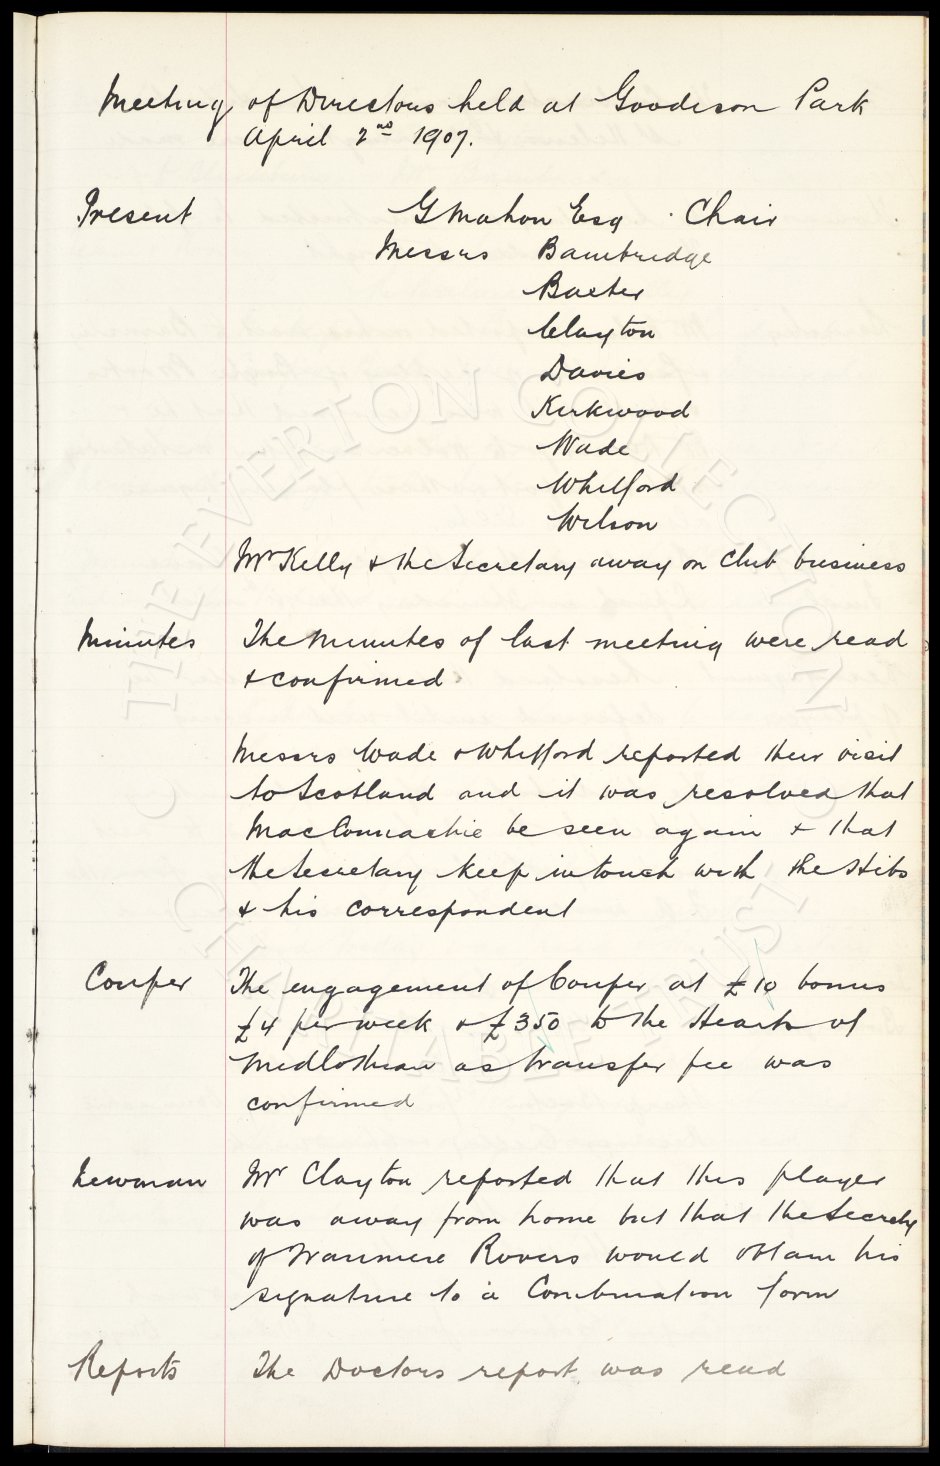 Meeting of Directors held at Goodison Park
April 2nd 1907.
Present G Mahon Esq Chair
Messrs Bainbridge
Baxter
Clayton
Davies
Kirkwood
Wade
Whitford
Wilson
Mr Kelly & the Secretary away on Club business
Minutes The Minutes of last meeting were read
& confirmed
Messrs Wade & Whitford reported their visit
to Scotland and it was resolved that
MacConnachie be seen again & that
the Secretary keep in touch with the Hibs
& his correspondent
Couper The engagement of Couper at £10 bonus
£4 per week & £350 to the Hearts of
Midlothian as transfer fee was
confirmed
Newman Mr Clayton reported that this player
was away from home but that the Secrety
of Tranmere Rovers would obtain his
signature to a Combination form
Reports The Doctors report was read
© THE EVERTON COLLECTION
CHARITABLE TRUST ©